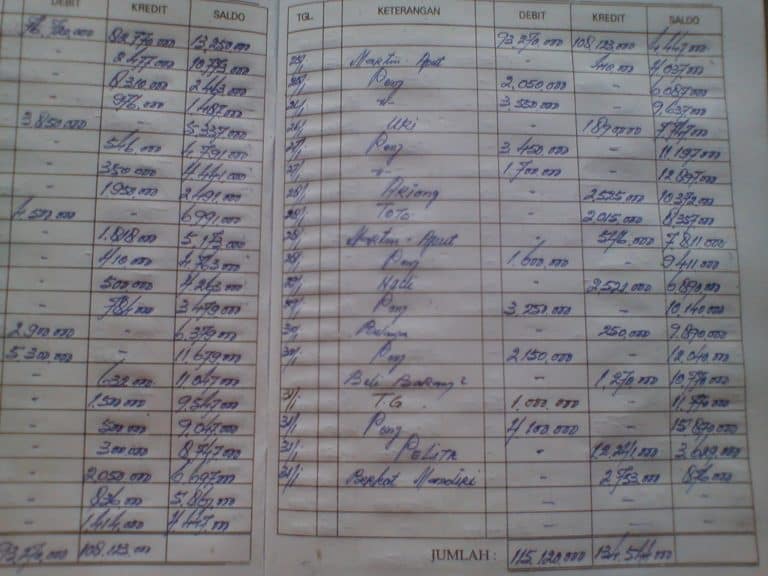 DEBIT KREDIT SALDO
82.770.000 13.250.000
- 2.477.000 10.773.000
- 8.310.000 2.463.000
- 976.000 1.487.000
3.850.000 - 5.337.000
- 546.000 4.791.000
- 350.000 4.441.000
- 1.950.000 2.491.000
4.500.000 - 6.991.000
- 1.818.000 5.173.000
- 410.000 4.763.000
- 500.000 4.263.000
- 784.000 3.479.000
2.900.000 - 6.379.000
5.300.000 - 11.679.000
- 632.000 11.047.000
- 1.500.000 9.547.000
- 500.000 9.047.000
- 300.000 8.747.000
- 2.050.000 6.697.000
- 836.000 5.861.000
- 1.414.000 4.447.000
93.270.000 108.123.000
TGL. KETERANGAN DEBIT KREDIT SALDO
93.270.000 108.123.000 4.447.000
- 410.000 4.037.000
Pong 2.050.000 - 6.087.000
3.550.000 - 9.637.000
Uki - 1.890.000 7.747.000
27/1 Pong 3.450.000 - 11.197.000
27/1 1.700.000 - 12.897.000
28/1 Akiong - 2.525.000 10.372.000
28/1 Toto - 2.015.000 8.357.000
- 546.000 7.811.000
Pong 1.600.000 - 9.411.000
- 2.521.000 6.890.000
Pong 3.250.000 - 10.140.000
- 250.000 9.890.000
30/1 Pong 2.150.000 - 12.040.000
Beli Barang2 - 1.270.000 10.770.000
31/1 T.G. 1.000.000 - 11.770.000
31/1 Pong 4.100.000 - 15.870.000
31/1 Pelita - 12.241.000 3.629.000
31/1 Berkat Mandiri - 2.753.000 876.000
JUMLAH : 115.120.000 134.544.000